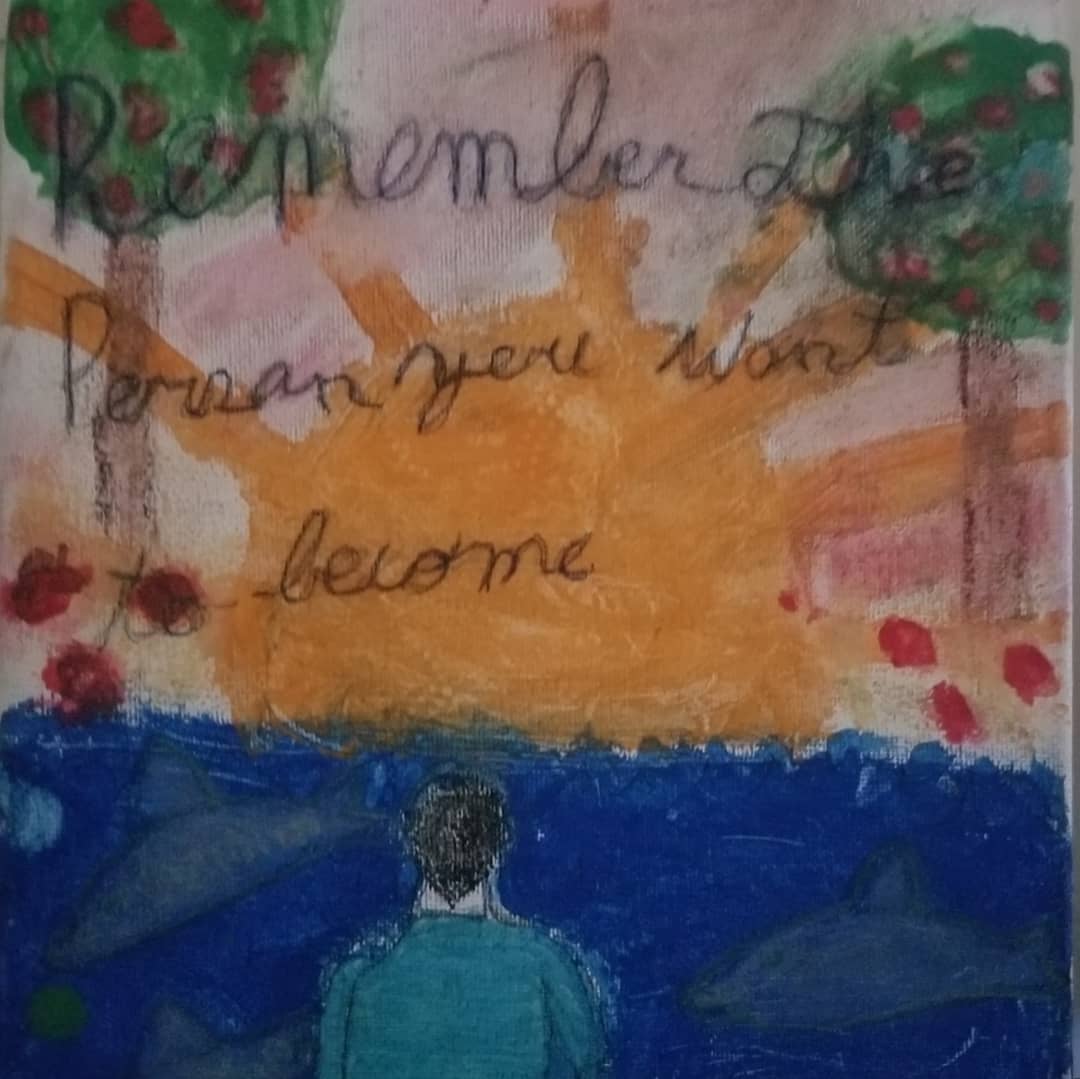 Remember The
Person you want
to become